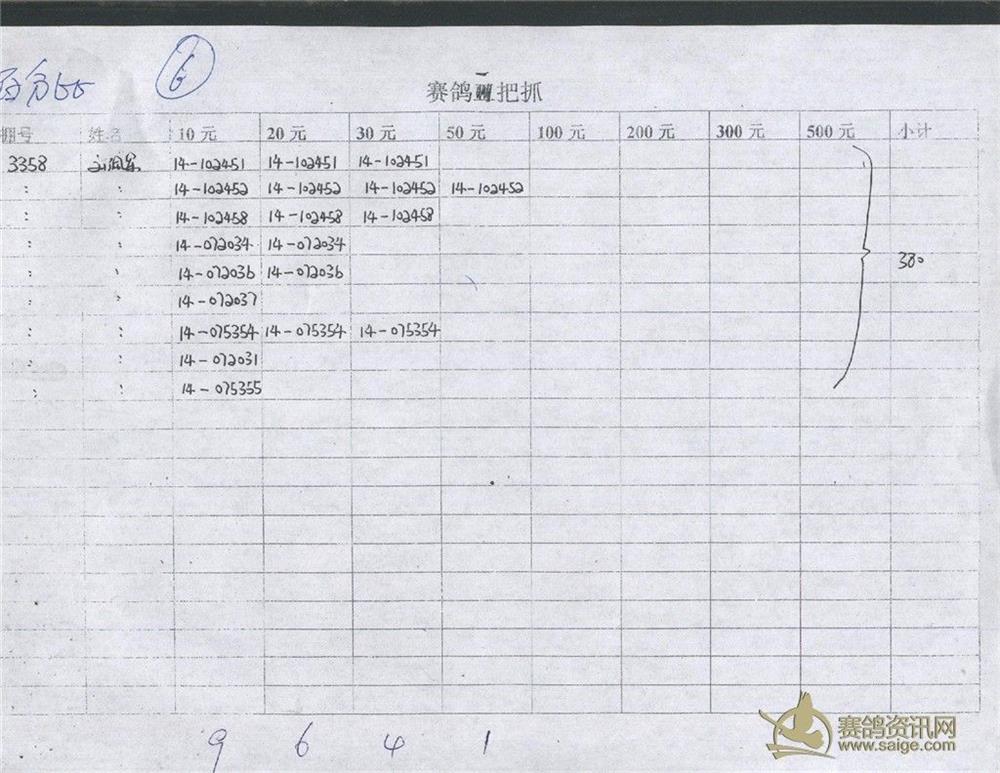 百分比 6
赛鸽一把抓
棚号 姓名 10 元 20 元 30 元 50 元 100 元 200 元 300 元 500 元 小计
3358 14-102451 14-102451 14-102451
: : 14-102452 14-102452 14-102452 14-102452
: : 14-102458 14-102458 14-102458
: : 14-072034 14-072034
: : 14-072036 14-072036 380
: : 14-072037
: : 14-075354 14-075354 14-075354
: : 14-072031
: : 14-075355
9 6 4 1
赛鸽资讯网
www.saige.com